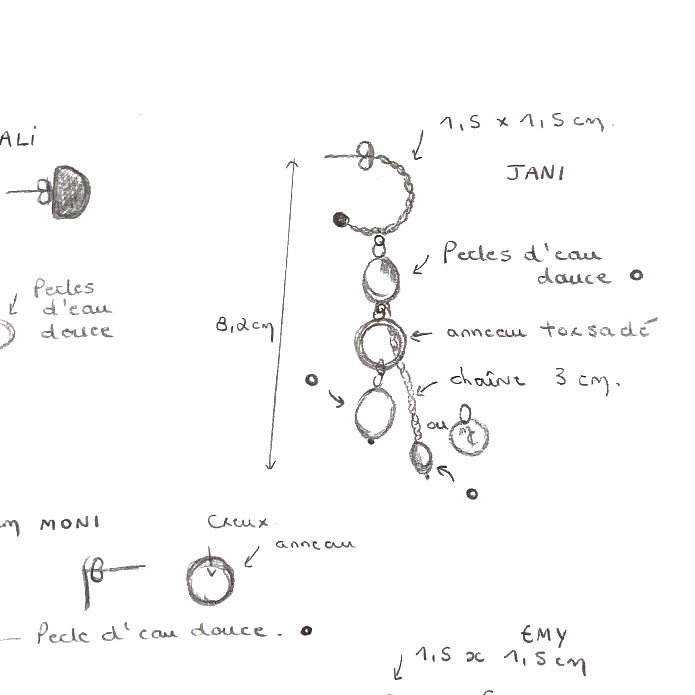 ALi
1,5 x 1,5 cm.
JANI
Perles d'eau
douce
Perles
d'eau
douce
8,2cm
anneau torsadé
chaîne 3 cm.
ou
m MONI
Creux
anneau
Perle d'eau douce.
EMY
1,5 x 1,5 cm